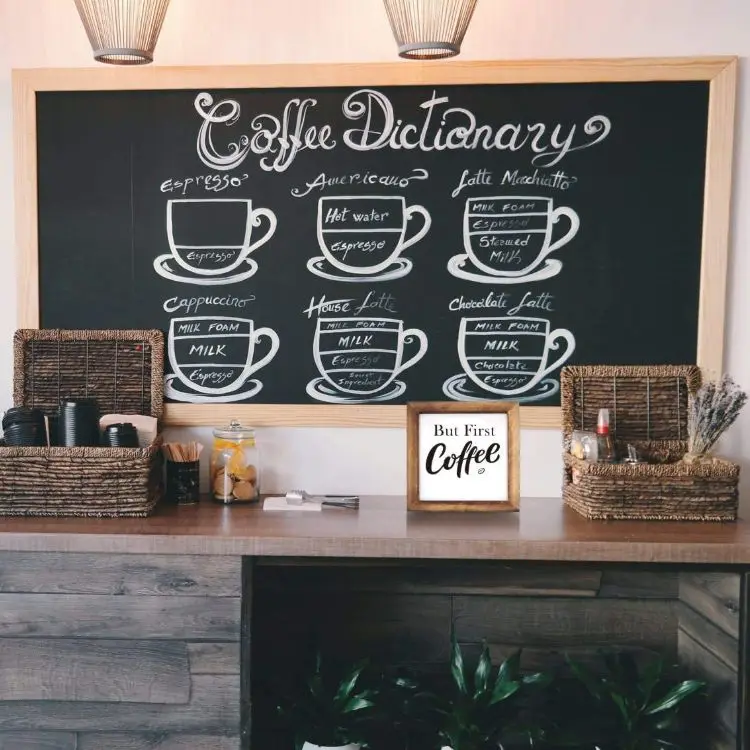 Coffee Dictionary
Espresso
Espresso
Americano
Hot water
Espresso
Latte Macchiatto
MILK FOAM
Espresso
Steamed
Milk
Cappuccino
MILK FOAM
MILK
Espresso
House Latte
MILK FOAM
MILK
Espresso
Secret
Ingredient
Chocolate Latte
MILK FOAM
MILK
Chocolate
Espresso
But First
Coffee